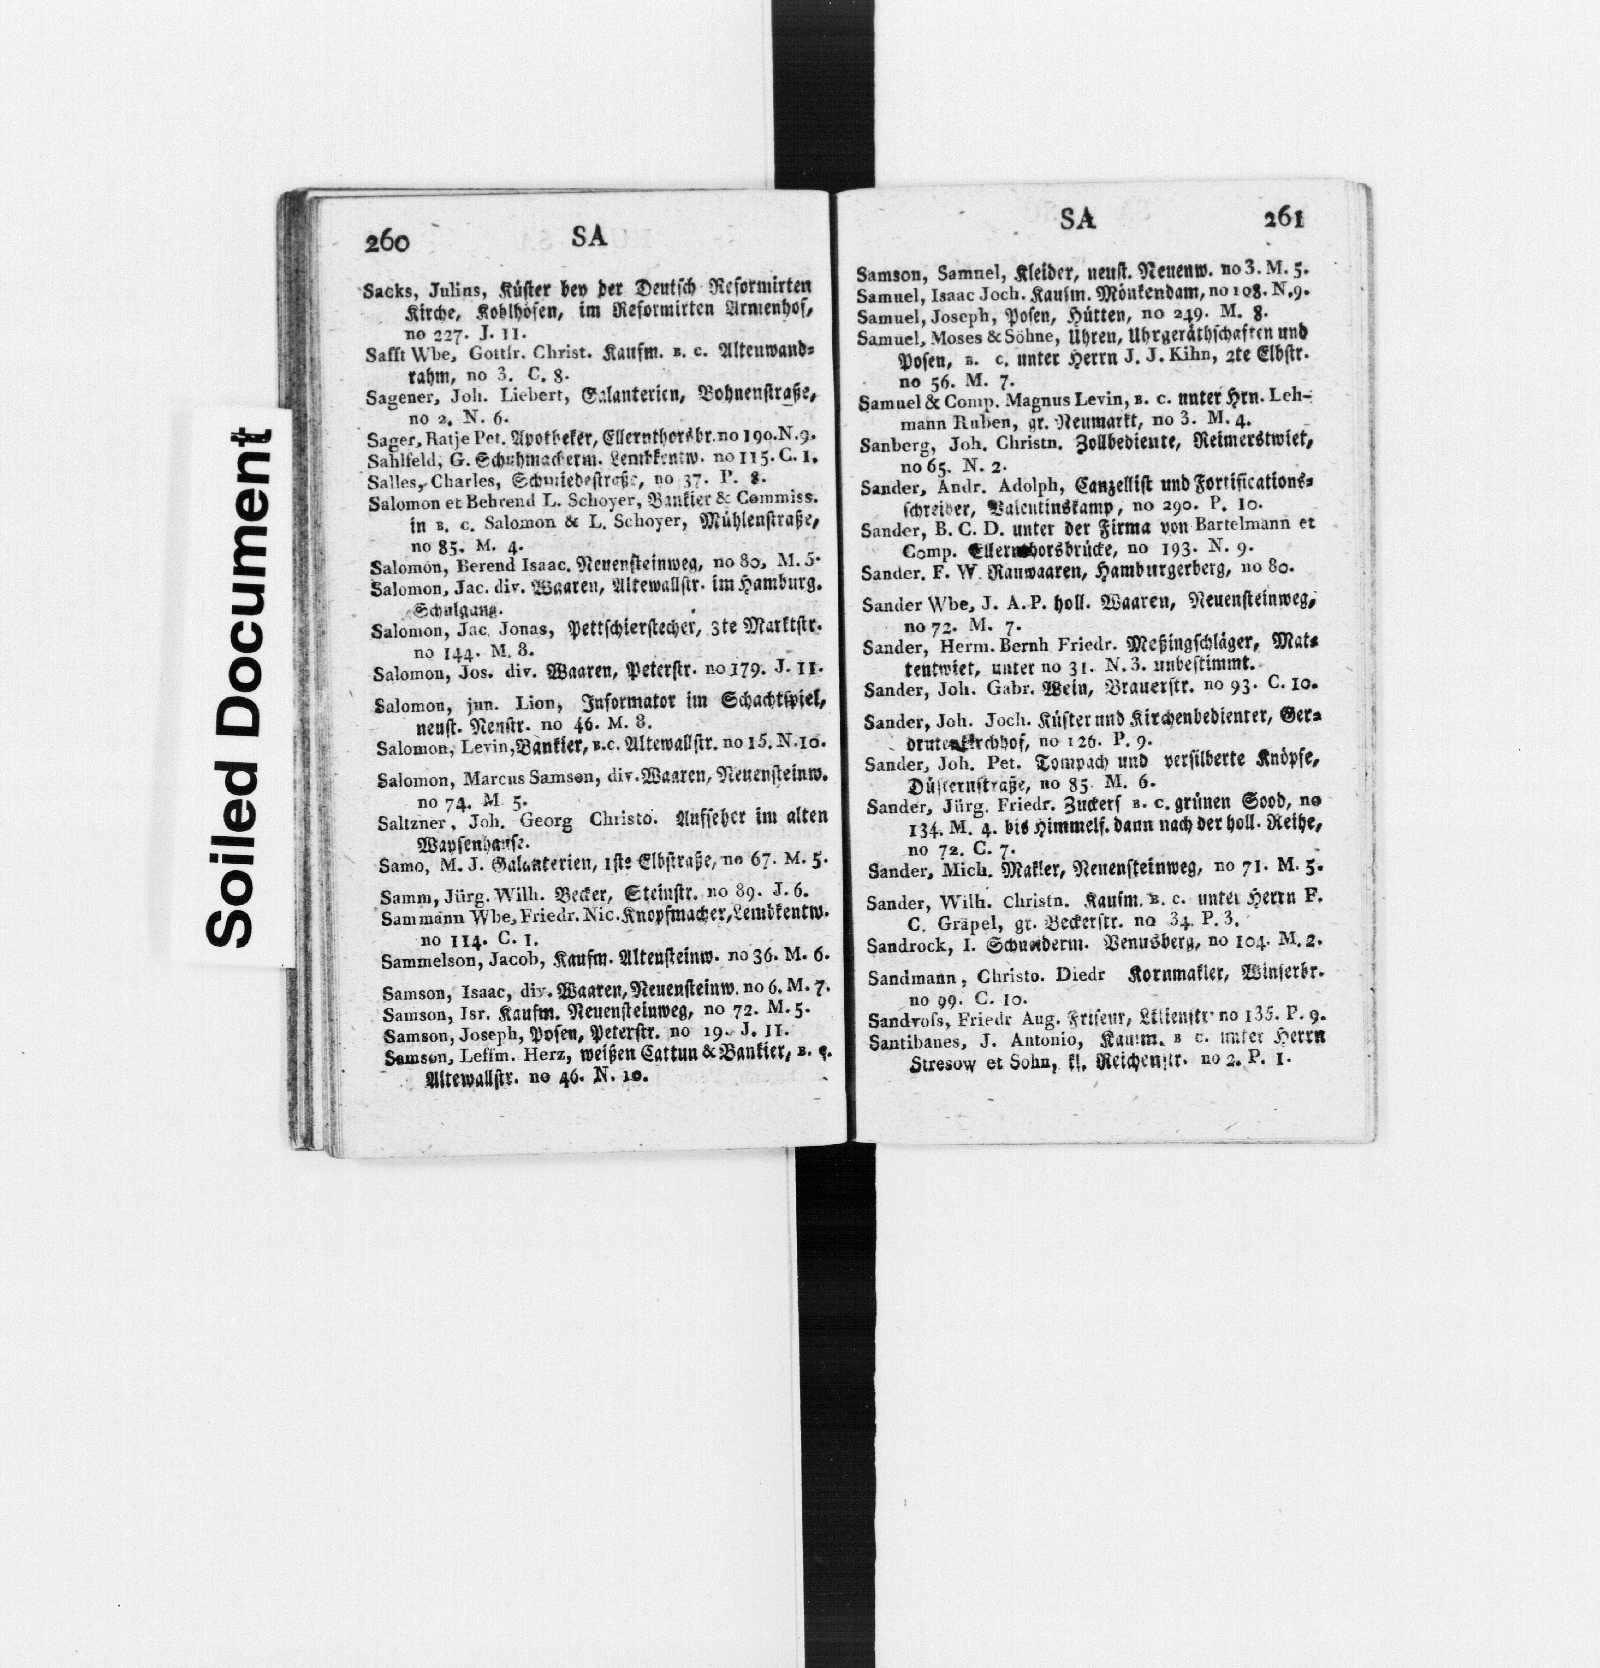 Soiled Document
260 SA
Sacks, Julius, Küster bey der Deutsch Reformirten
Kirche, Kohlhöfen, im Reformirten Armenhof,
no 227. J. 11.
Safft Wbe, Gottfr. Christ. Kaufm. B. c. Altenwand=
rahm, no 3. C. 8.
Sagener, Joh. Liebert, Galanterien, Bohnenstraße,
no 2. N. 6.
Sager, Ratje Pet. Apotheker, Ellernthorsbr. no 190. N. 9.
Sahlfeld, G. Schuhmacherm. Lembkentw. no 115. C. 1.
Salles, Charles, Schmiedestraße, no 37. P. 8.
Salomon et Behrend L. Schoyer, Bankier & Commiss.
in B. c. Salomon & L. Schoyer, Mühlenstraße,
no 85. M. 4.
Salomon, Berend Isaac. Neuensteinweg, no 80, M. 5.
Salomon, Jac. div. Waaren, Altewallstr. im Hamburg.
Schulgang.
Salomon, Jac. Jonas, Pettschierstecher, 3te Marktstr.
no 144. M. 8.
Salomon, Jos. div. Waaren, Peterstr. no 179. J. 11.
Salomon, jun. Lion, Informator im Schachtspiel,
neust. Neustr. no 46. M. 8.
Salomon, Levin, Bankier, B. c. Altewallstr. no 15. N. 10.
Salomon, Marcus Samson, div. Waaren, Neuensteinw.
no 74. M 5.
Saltzner, Joh. Georg Christo. Aufseher im alten
Waysenhause.
Samo, M. J. Galanterien, 1ste Elbstraße, no 67. M. 5.
Samm, Jürg. Wilh. Becker, Steinstr. no 89. J. 6.
Sammann Wbe, Friedr. Nic. Knopfmacher, Lembkentw.
no 114. C. 1.
Sammelson, Jacob, Kaufm. Altensteinw. no 36. M. 6.
Samson, Isaac, div. Waaren, Neuensteinw. no 6. M. 7.
Samson, Isr. Kaufm. Neuensteinweg, no 72. M. 5.
Samson, Joseph, Posen, Peterstr. no 19. J. 11.
Samson, Leffm. Herz, weißen Cattun & Bankier, B. c.
Altewallstr. no 46. N. 10.
SA 261
Samson, Samuel, Kleider, neust. Neuenw. no 3. M. 5.
Samuel, Isaac Joch. Kaufm. Mönkendam, no 108. N. 9.
Samuel, Joseph, Posen, Hütten, no 249. M. 8.
Samuel, Moses & Söhne, Uhren, Uhrgeräthschaften und
Posen, B. c. unter Herrn J. J. Kihn, 2te Elbstr.
no 56. M. 7.
Samuel & Comp. Magnus Levin, B. c. unter Hrn. Leh-
mann Ruben, gr. Neumarkt, no 3. M. 4.
Sanberg, Joh. Christn. Zollbediente, Reimerstwiet,
no 65. N. 2.
Sander, Andr. Adolph, Canzellist und Fortifications=
schreiber, Valentinskamp, no 290. P. 10.
Sander, B. C. D. unter der Firma von Bartelmann et
Comp. Ellernthorsbrücke, no 193. N. 9.
Sander. F. W. Rauwaaren, Hamburgerberg, no 80.
Sander Wbe, J. A. P. holl. Waaren, Neuensteinweg,
no 72. M. 7.
Sander, Herm. Bernh Friedr. Meßingschläger, Mat=
tentwiet, unter no 31. N. 3. unbestimmt.
Sander, Joh. Gabr. Wein, Brauerstr. no 93. C. 10.
Sander, Joh. Joch. Küster und Kirchenbedienter, Ger=
drutenkirchhof, no 126. P. 9.
Sander, Joh. Pet. Tompach und versilberte Knöpfe,
Düsternstraße, no 85. M. 6.
Sander, Jürg. Friedr. Zuckerf B. c. grünen Sood, no
134. M. 4. bis Himmelf. dann nach der holl. Reihe,
no 72. C. 7.
Sander, Mich. Makler, Neuensteinweg, no 71. M. 5.
Sander, Wilh. Christn. Kaufm. B. c. unter Herrn F.
C. Gräpel, gr. Beckerstr. no 34. P. 3.
Sandrock, I. Schneiderm. Venusberg, no 104. M. 2.
Sandmann, Christo. Diedr Kornmakler, Winserbr.
no 99. C. 10.
Sandvoss, Friedr Aug. Friseur, Lilienstr no 135. P. 9.
Santibanes, J. Antonio, Kaufm. B c. unter Herrn
Stresow et Sohn, kl. Reichenstr. no 2. P. 1.